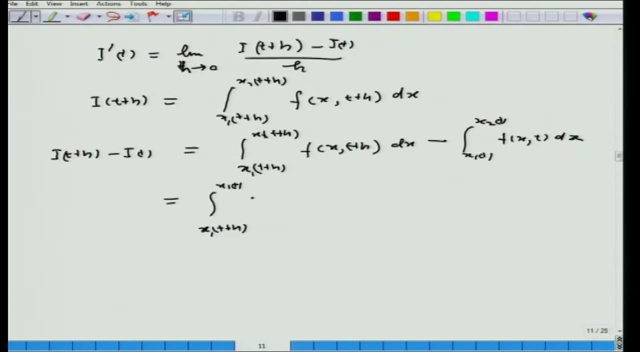 File Edit View Insert Actions Tools Help
I'(t) = lim h→0 I(t+h) − I(t) / h
I(t+h) = ∫_{x₁(t+h)}^{x₂(t+h)} f(x, t+h) dx
I(t+h) − I(t) = ∫_{x₁(t+h)}^{x₂(t+h)} f(x, t+h) dx − ∫_{x₁(t)}^{x₂(t)} f(x, t) dx
= ∫_{x₁(t+h)}^{x₁(t)}
11 / 25
11